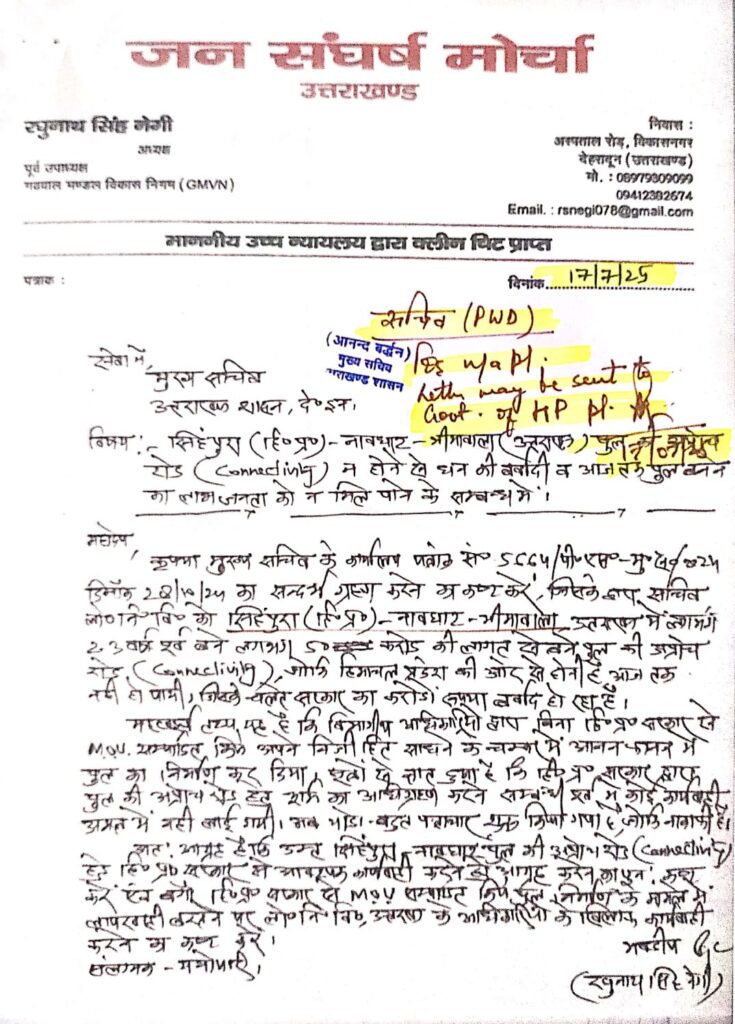 जन संघर्ष मोर्चा
उत्तराखण्ड
रघुनाथ सिंह नेगी
अध्यक्ष
पूर्व उपाध्यक्ष
गढवाल मण्डल विकास निगम (GMVN)
निवास :
अस्पताल रोड़, विकासनगर
देहरादून (उत्तराखण्ड)
मो. : 08979309099
09412382674
Email. : rsnegi078@gmail.com
माननीय उच्च न्यायलय द्वारा क्लीन चिट प्राप्त
पत्राक :
दिनांक 17/7/25
सचिव (PWD)
(आनन्द बर्द्धन)
मुख्य सचिव
उत्तराखण्ड शासन
n/a pl.
Letter may be sent to
Govt. of HP pl.
सेवा में,
मुख्य सचिव
उत्तराखण्ड शासन, दे०दून।
विषय:- सिंहपुरा (हि०प्र०)-नावघाट-भीमावाला (उत्तराखण्ड) पुल की अप्रोच
रोड (Connectivity) न होने से धन की बर्बादी व आज तक पुल बनने
का लाभ जनता को न मिल पाने के सम्बन्ध में।
महोदय,
कृपया मुख्य सचिव के कार्यालय पत्रांक सं०
दिनांक 28/10/24 का सन्दर्भ ग्रहण करने का कष्ट करें, जिसके द्वारा सचिव
लो०नि०वि० को सिंहपुरा (हि०प्र०)-नावघाट-भीमावाला उत्तराखण्ड में लगभग
2-3 वर्ष पूर्व बने लगभग करोड की लागत से बने पुल की अप्रोच
रोड (Connectivity), जोकि हिमाचल प्रदेश की ओर से होनी है आज तक
नहीं हो पायी, जिसके चलते सरकार का करोडों रूपया बर्बाद हो रहा है।
महत्वपूर्ण तथ्य यह है कि विभागीय अधिकारियों द्वारा बिना हि०प्र० सरकार से
M.O.U. सम्पादित किये अपने निजी हित साधने के चक्कर में आनन फानन में
पुल का निर्माण कर दिया, सूत्रों से ज्ञात हुआ है कि हि० प्र० सरकार द्वारा
पुल की अप्रोच रोड हेतु का अधिग्रहण करने सम्बन्धी पूर्व में कोई कार्यवाही
अमल में नहीं लाई गयी। अब थोडा-बहुत पत्राचार शुरू किया गया है, जोकि नाकाफी है।
अतः आग्रह है कि उक्त सिंहपुरा-नावघाट पुल की अप्रोच रोड (Connectivity)
हेतु हि० प्र० सरकार से आवश्यक कार्यवाही करने का आग्रह करने का पुनः कष्ट
करें एवं बगैर हि०प्र० सरकार से M.O.U सम्पादित किये पुल निर्माण के मामले में
लापरवाही बरतने पर लो०नि०वि०, उत्तराखण्ड के अधिकारियों के खिलाफ कार्यवाही
करने का कष्ट करें।
संलग्नक - यथोपरि।
भवदीय
(रघुनाथ सिंह नेगी)